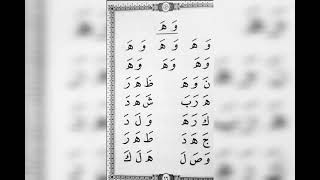 وَ هَ
وَ هَ وَ هَ وَ هَ
وَ هَ وَ هَ وَ هَ
نَ وَ هَ ظَ هَ رَ
هَ رَ بَ شَ هَ دَ
كَ رَ هَ وَ لَ دَ
جَ هَ دَ طَ هَ رَ
وَ صَ لَ هَ لَ كَ